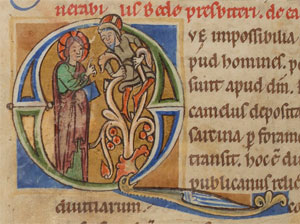 uenerabil̅ Bede presbiteri. de ca
uę impossibilia
pud homines. po
sunt apud dm̅.
camelus deposita
sarcina ꝑ foram
transit. hoc ÷ du
publicanus relic
diuitiarum.